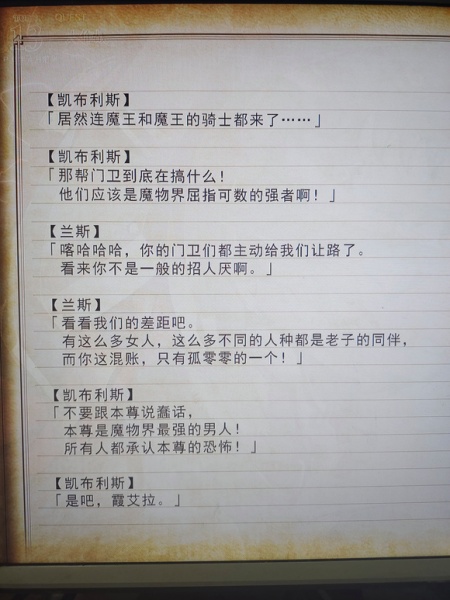 【凯布利斯】
「居然连魔王和魔王的骑士都来了……」
【凯布利斯】
「那帮门卫到底在搞什么！
他们应该是魔物界屈指可数的强者啊！」
【兰斯】
「喀哈哈哈，你的门卫们都主动给我们让路了。
看来你不是一般的招人厌啊。」
【兰斯】
「看看我们的差距吧。
有这么多女人，这么多不同的人种都是老子的同伴，
而你这混账，只有孤零零的一个！」
【凯布利斯】
「不要跟本尊说蠢话，
本尊是魔物界最强的男人！
所有人都承认本尊的恐怖！」
【凯布利斯】
「是吧，霞艾拉。」